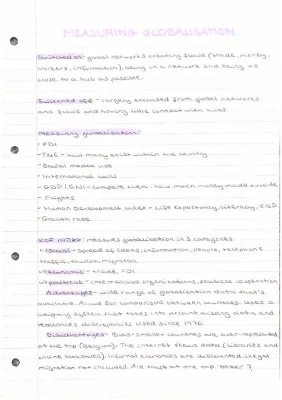 MEASURING GLOBALISATION
Switched on - global networks creating flows (trade, money,
workers, information). being in a network and being as
close to a hub as possible.
Switched off - largely excluded from global networks
and flows and having little contact with hubs
Measuring globalisation:
- FDI
- TNC - how many exist within the country
- Social media use
- International calls
- GDP / GNI - compare them. how much money made outside
- Flights
- Human Development Index - Life expectancy, literacy, GDP
- Growth rate
KOF INDEX: measures globalisation in 3 categories
Social - spread of ideas, information, people, telephone
traffic, tourism, migration
Economic - trade, FDI
Political - international organisations, political cooperation
Advantages - wide range of globalisation data that's
available. Allows for comparison between countries. Uses a
weighting system that takes into account missing data, and
discrepancies used since 1970
Disadvantages - Bias - smaller countries are over-represented
at the top (Belgium). The internet shows data (libraries and
). Informal economies are discounted. illegal
migration not included. Are those at the top 'better'?